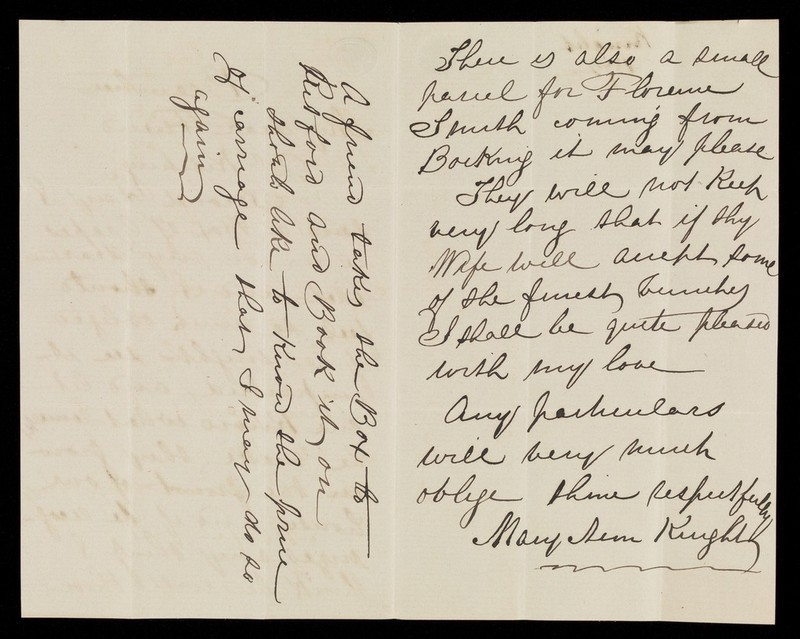 There is also a small
parcel for Florence
Smith coming from
Bocking it may please
They will not Keep
very long that if thy
Wife will accept some
of the finest bunches
I shall be quite pleased
with my love
Any particulars
will very much
oblige thine respectfully
Mary Ann Knight
A friend takes the Box to
Retford and Book it on
should like to know the price
of carriage that I may do so
again